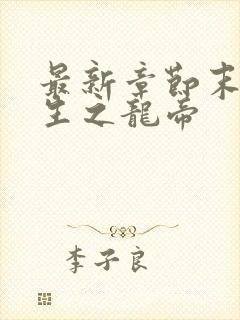 最新章節末
生之龍帝
李子良